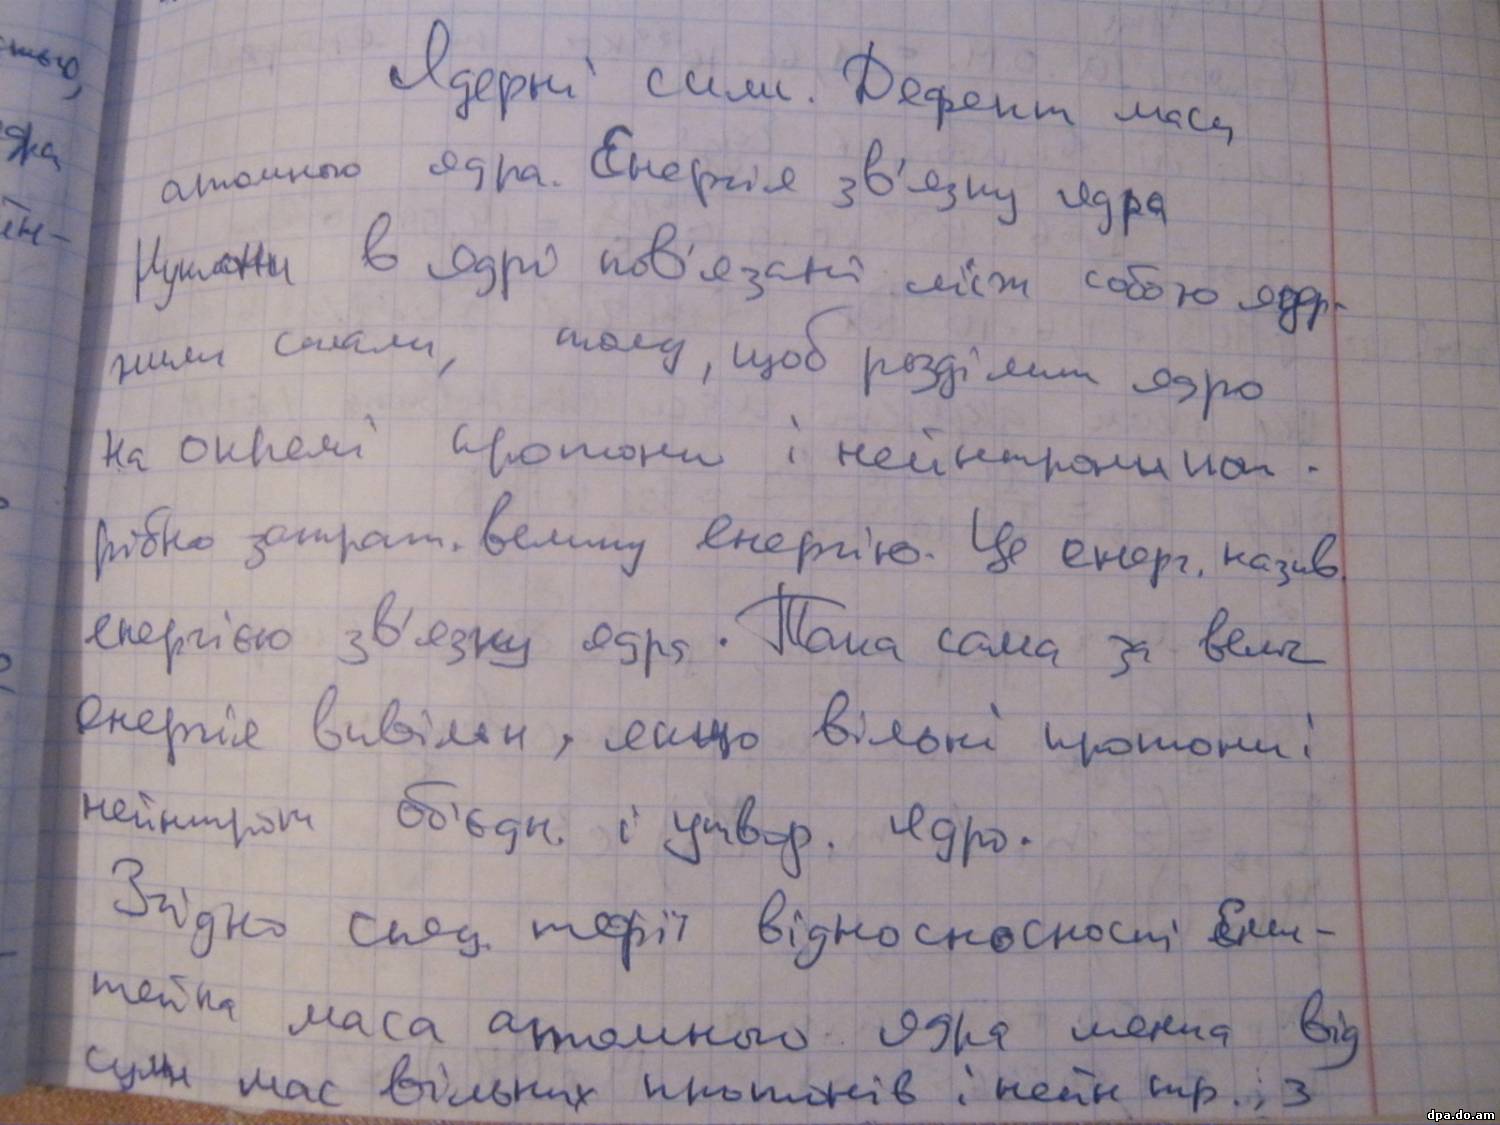 стью,
ядра
їн-
Ядерні сили. Дефект маси
атомного ядра. Енергія зв'язку ядра
Нуклони в ядрі пов'язані між собою ядер-
ними силами, тому, щоб розділити ядро
на окремі протони і нейнтрони пот-
рібно затрат. велику енергію. Це енерг. назив.
енергією зв'язку ядра. Така сама за велич
енергія вивільн, якщо вільні протони і
нейнтрони об'єдн. і утвор. ядро.
Згідно спец. терії відносносності Енш-
тейна маса атомного ядра менша від
суми мас вільних протонів і нейнтр., з
dpa.do.am